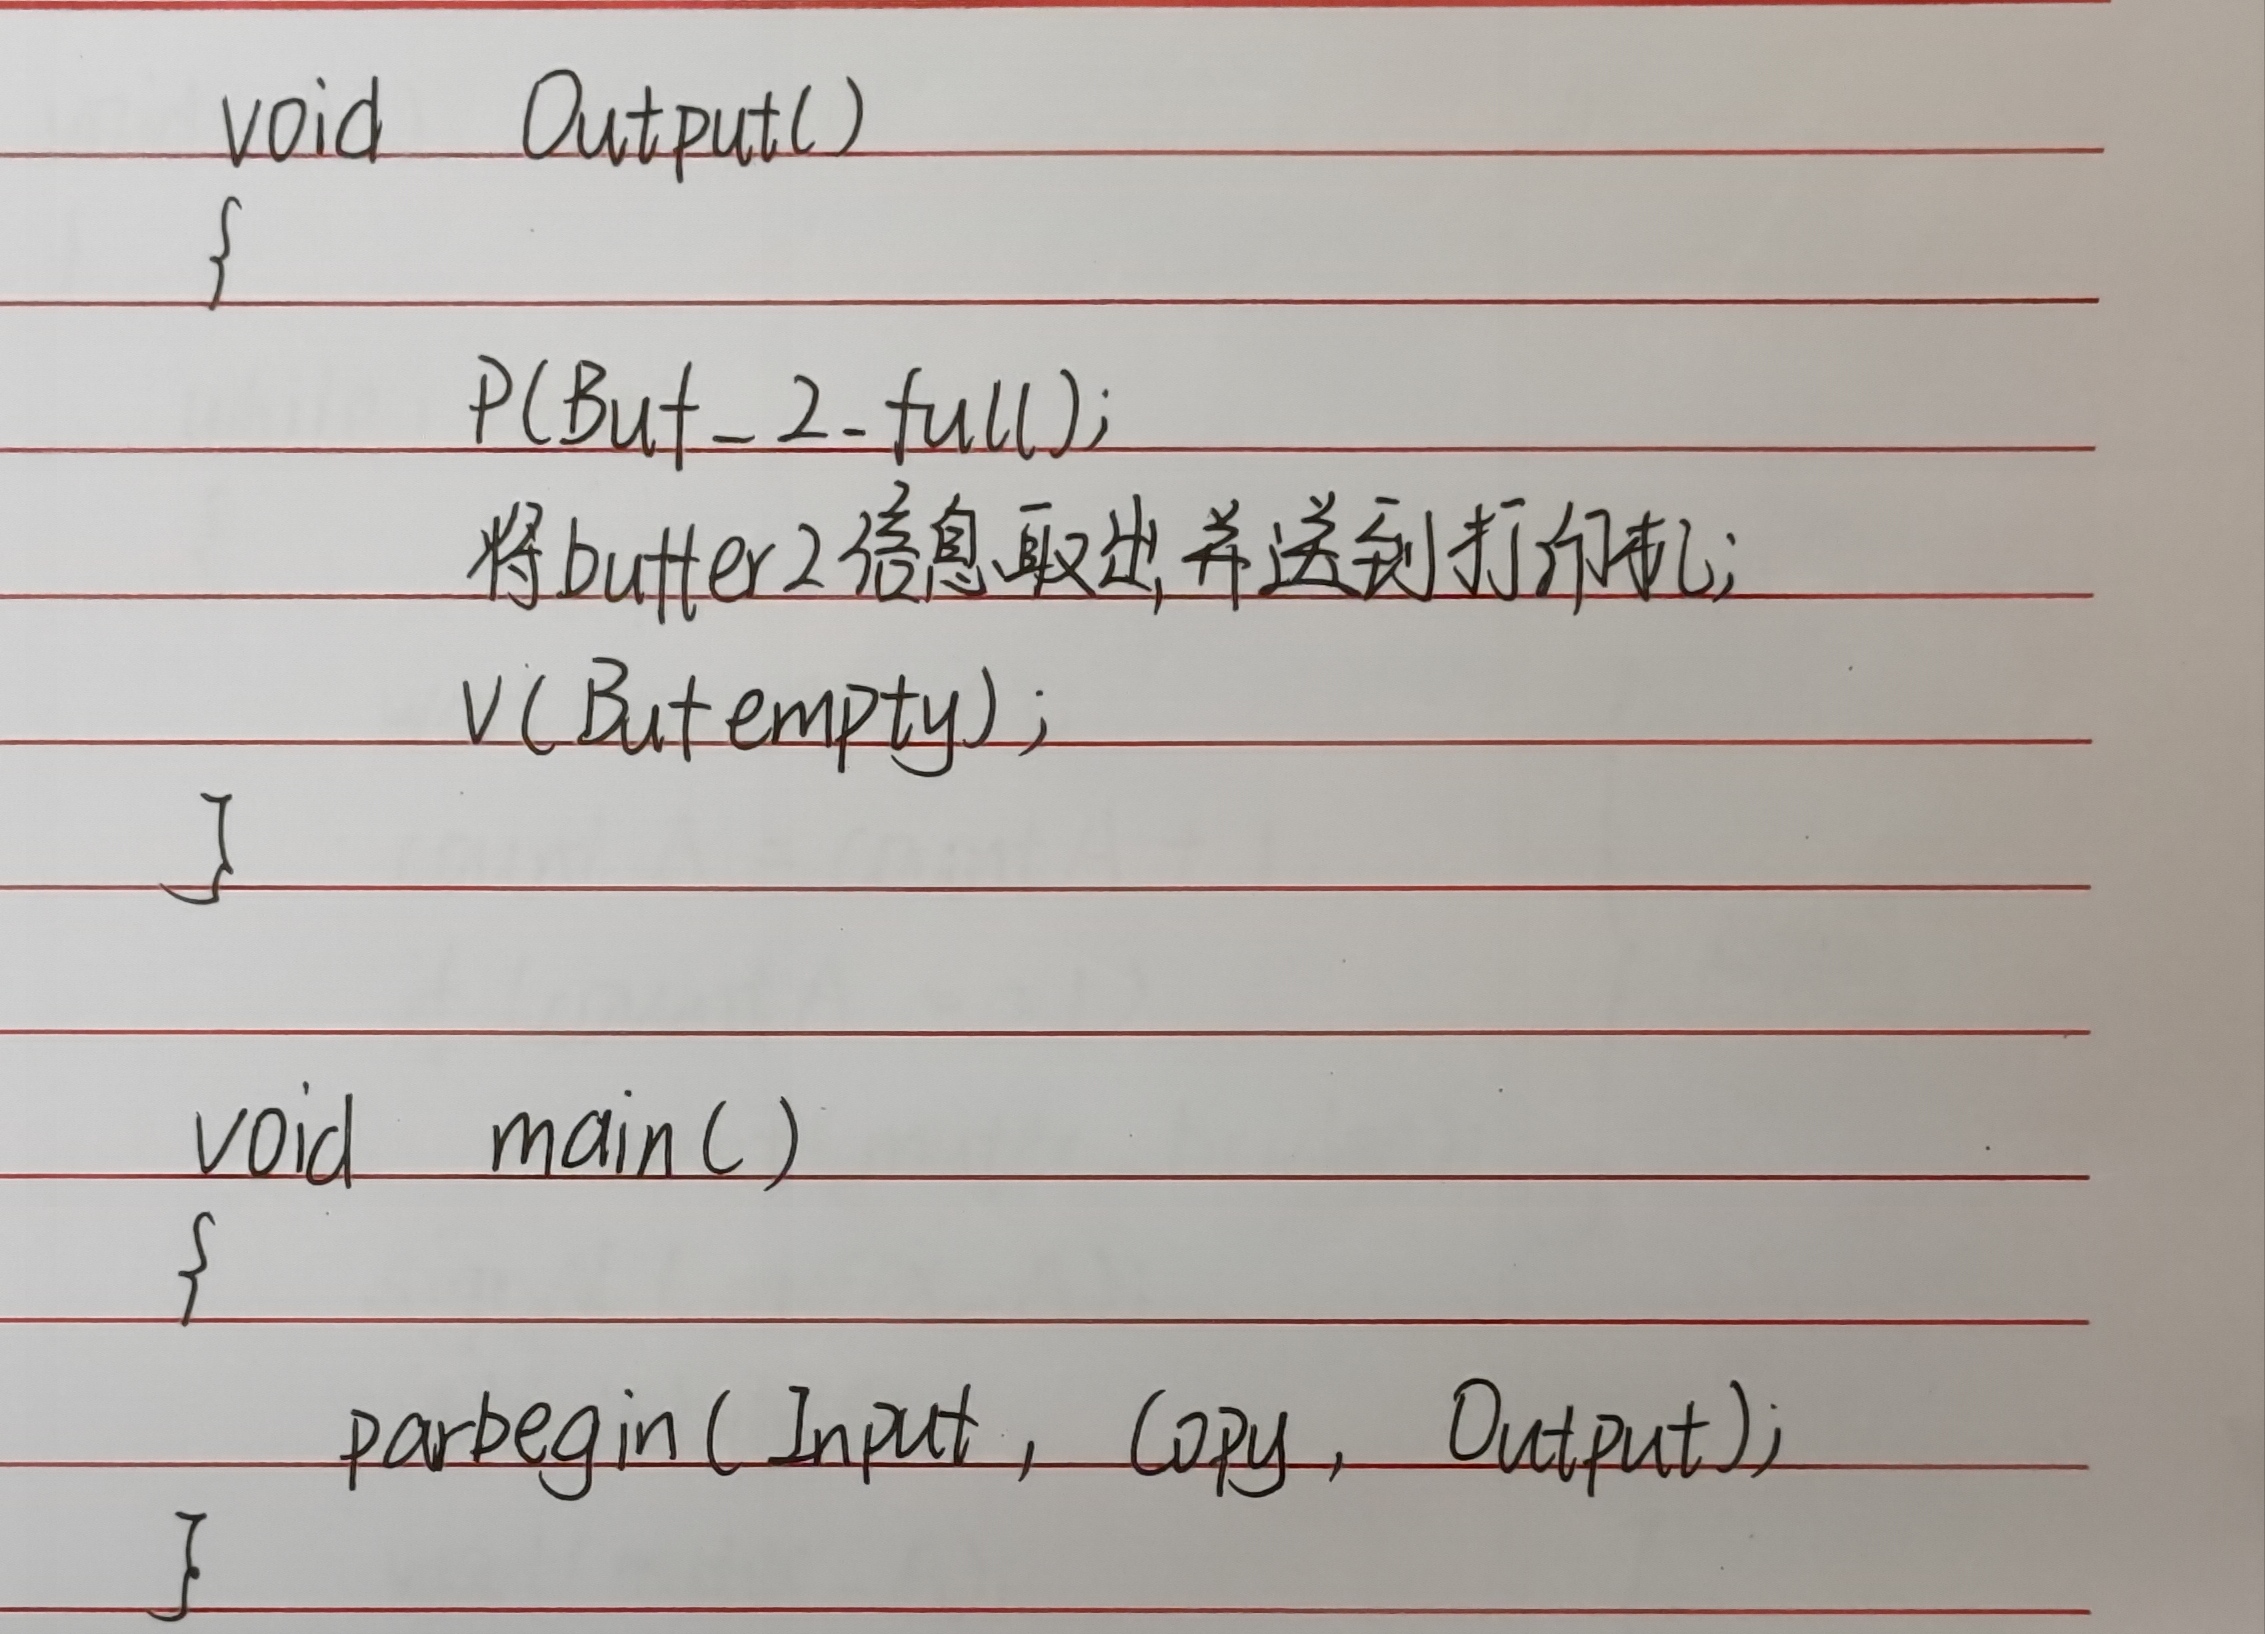 void Output()
{
P(Buf_2_full);
将buffer2信息取出,并送到打印机;
V(Buf empty);
}
void main()
{
parbegin(Input, Copy, Output);
}